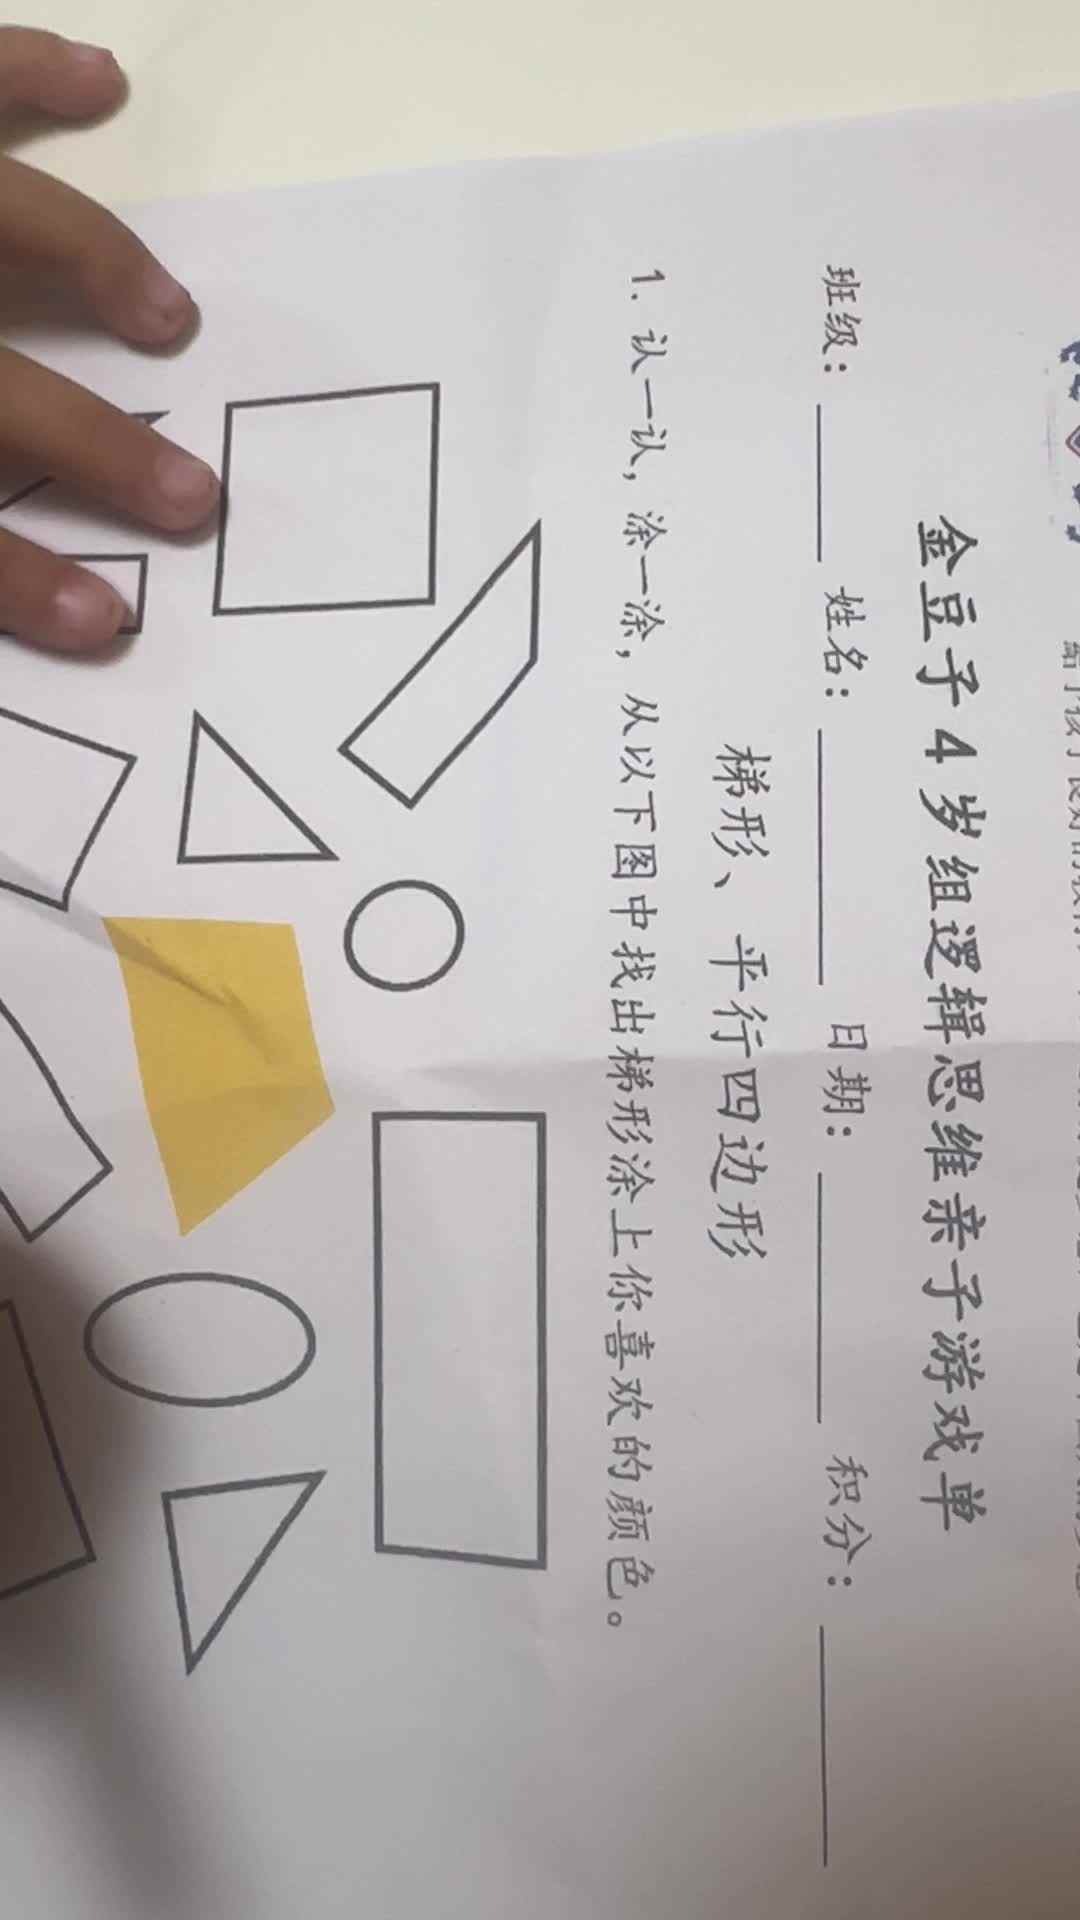 金豆子4岁组逻辑思维亲子游戏单
班级：姓名：日期：积分：
梯形、平行四边形
1. 认一认，涂一涂，从以下图中找出梯形涂上你喜欢的颜色。